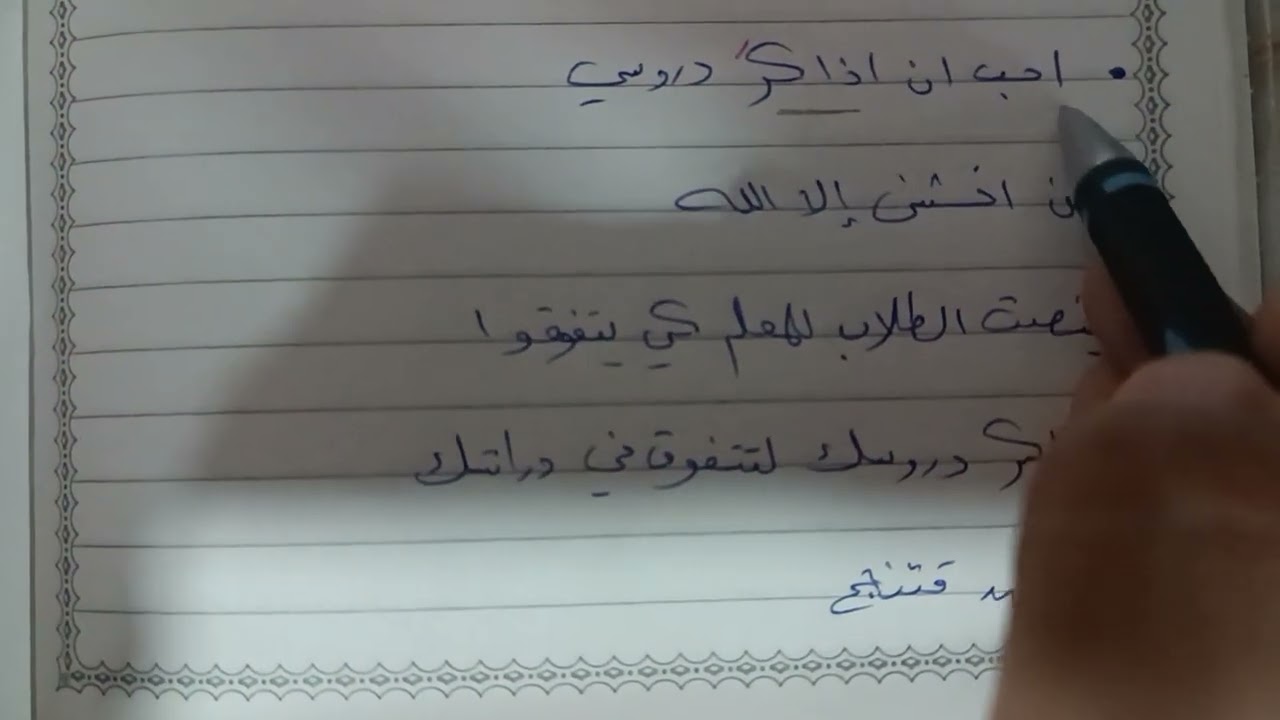 • احب ان اذاكرَ دروسي
اخشى إلا الله
ينصت الطلاب للمعلم كي يتفوقوا
دروسك لتتفوق في دراتسك
فتنجح